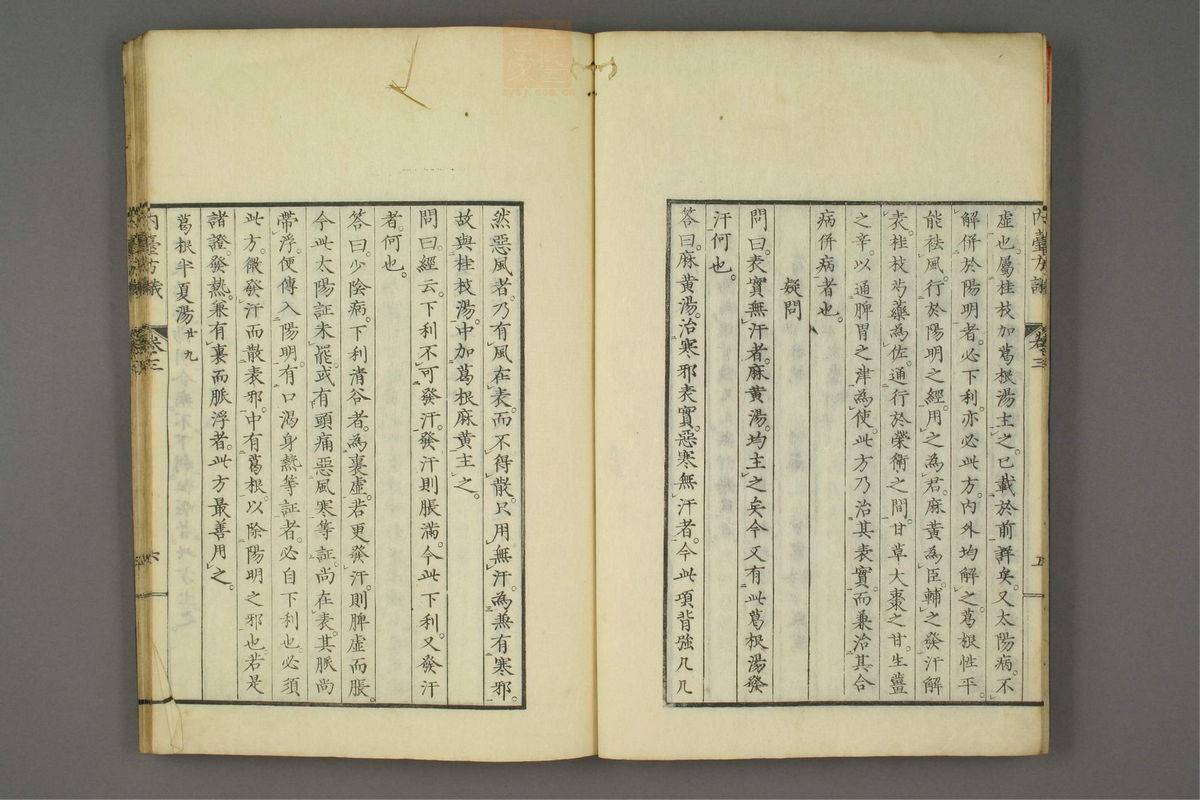 虛也。屬桂枝加葛根湯主之。已載於前詳矣。又太陽病。不
解併於陽明者。必下利。亦必此方。內外均解之。葛根性平。
能祛風。行於陽明之經。用之為君。麻黃為臣。輔之發汗解
表。桂枝芍藥為佐。通行於榮衛之間。甘草大棗之甘。生薑
之辛。以通脾胃之津為使。此方乃治其表實。而兼治其合
病併病者也。
疑問
問曰。表實無汗者。麻黃湯。均主之矣。今又有此葛根湯發
汗何也。
答曰。麻黃湯。治寒邪表實。惡寒無汗者。今此項背強几几
然惡風者。乃有風在表。而不得散。只用無汗。為兼有寒邪。
故與桂枝湯。中加葛根麻黃主之。
問曰。經云。下利不可發汗。發汗則脹滿。今此下利。又發汗
者。何也。
答曰。少陰病。下利清谷者。為裏虛。若更發汗。則脾虛而脹。
今此太陽証未罷。或有頭痛惡風寒等証。尚在表。其脈尚
帶浮。便傳入陽明。有口渴身熱等証者。必自下利也。必須
此方。微發汗而散表邪。中有葛根。以除陽明之邪也。若是
諸證。發熱。兼有裏而脈浮者。此方最善用之。
葛根半夏湯 廿九
內臺方議 卷三 六